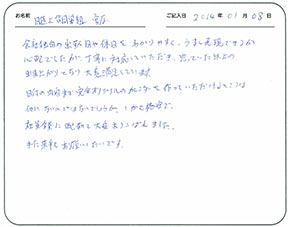 お名前 ご記入日 2014年01月08日
会社独自の出勤日や休日を、わかりやすく、うまく表現できるか
心配でしたが、丁寧に対応していただき、思っていた以上の
出来上がりとなり大変満足しています。
日付の内容まで完全オリジナルのカレンダーを作っていただけるところは
他にないのではないでしょうか。しかも格安で。
社員全員に配布して大変よろこばれました。
また来年もお願いしたいです。